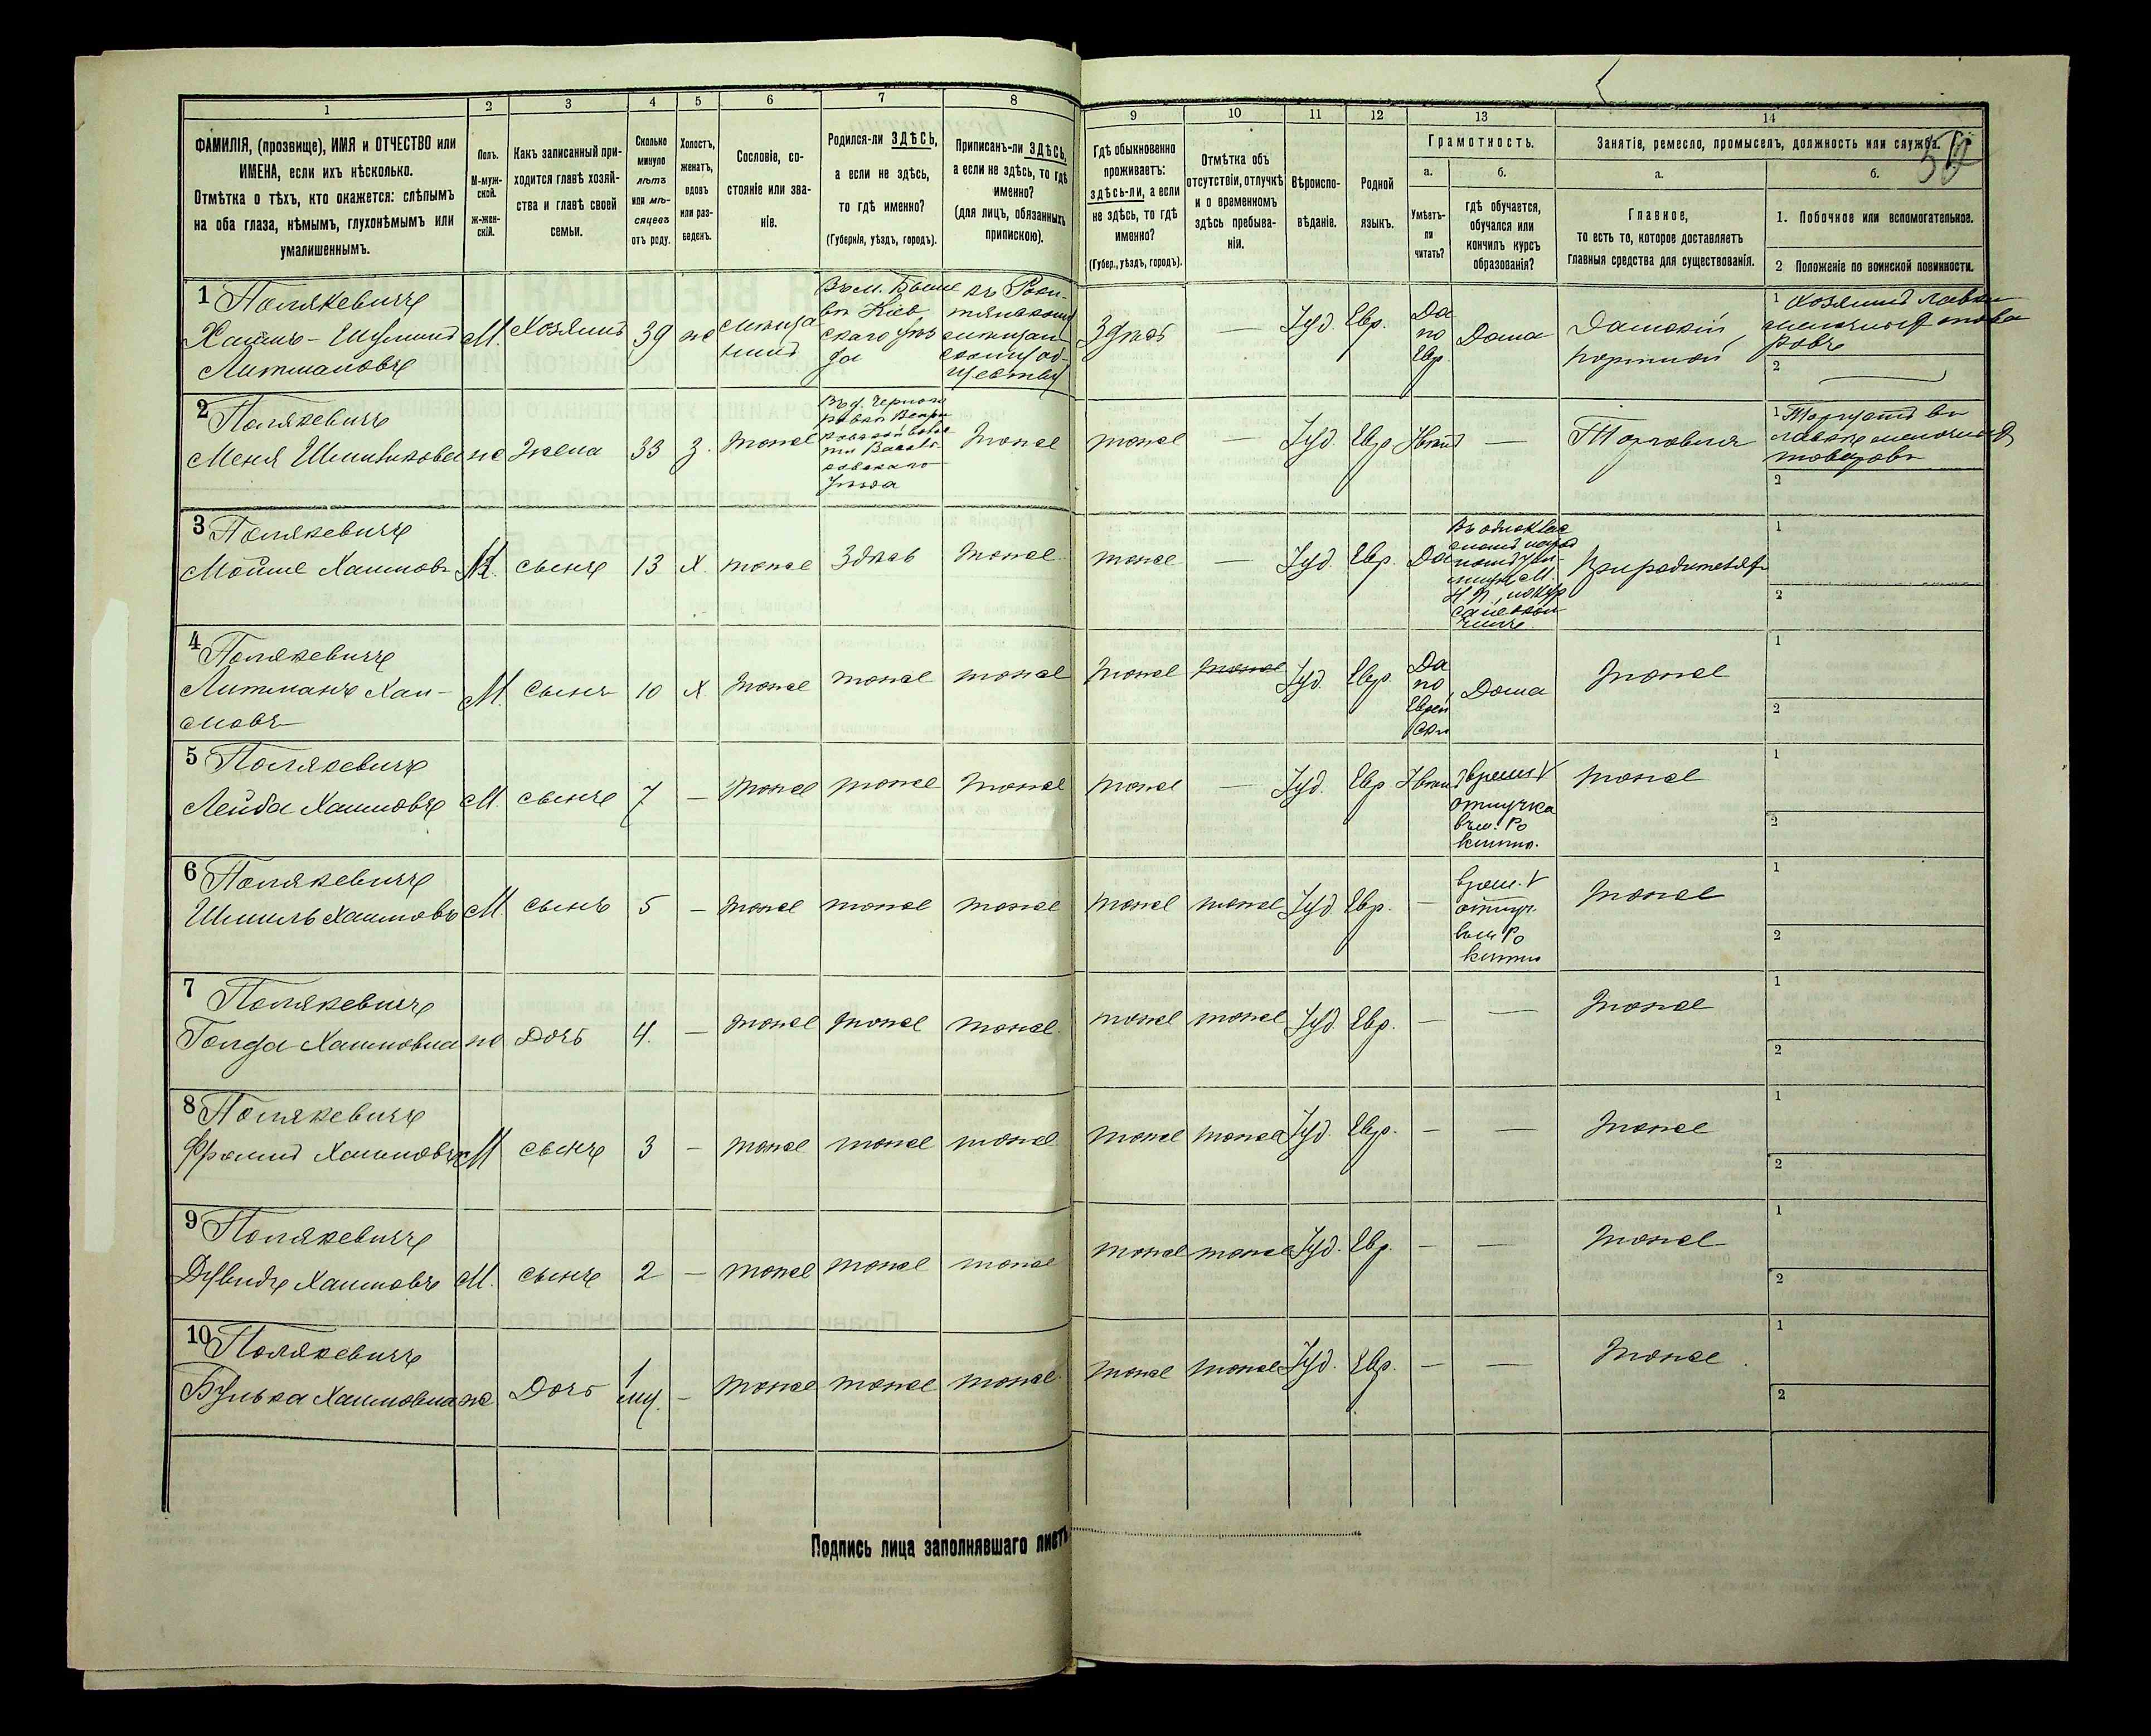 1
2
3
4
5
6
7
8
ФАМИЛІЯ, (прозвище), ИМЯ и ОТЧЕСТВО или
ИМЕНА, если ихъ нѣсколько.
Отмѣтка о тѣхъ, кто окажется: слѣпымъ
на оба глаза, нѣмымъ, глухонѣмымъ или
умалишеннымъ.
Полъ.
М-муж-
ской.
Ж-жен-
скій.
Какъ записанный при-
ходится главѣ хозяй-
ства и главѣ своей
семьи.
Сколько
минуло
лѣтъ
или мѣ-
сяцевъ
отъ роду.
Холостъ,
женатъ,
вдовъ
или раз-
веденъ.
Сословіе, со-
стояніе или зва-
ніе.
Родился-ли ЗДѢСЬ,
а если не здѣсь,
то гдѣ именно?
(Губернія, уѣздъ, городъ).
Приписанъ-ли ЗДѢСЬ,
а если не здѣсь, то гдѣ
именно?
(для лицъ, обязанныхъ
припискою).
9
10
11
12
13
14
Гдѣ обыкновенно
проживаетъ:
здѣсь-ли, а если
не здѣсь, то гдѣ
именно?
(Губер., уѣздъ, городъ).
Отмѣтка объ
отсутствіи, отлучкѣ
и о временномъ
здѣсь пребыва-
ніи.
Вѣроиспо-
вѣданіе.
Родной
языкъ.
Грамотность.
а.
Умѣетъ-
ли
читать?
б.
гдѣ обучается,
обучался или
кончилъ курсъ
образованія?
Занятія, ремесло, промыселъ, должность или служба.
а.
Главное,
то есть то, которое доставляетъ
главныя средства для существованія.
б.
1. Побочное или вспомогательное.
2 Положеніе по воинской повинности.
1 Полякевичъ
Хаимъ-Шулимъ
Литмановъ
М. Хозяинъ 39 ж
Здѣсь — Іуд. Евр.
Да
по
Евр.
Дома
Дамскій
портной
1 Хозяинъ лавки
2
2 Полякевичъ
ж Жена 33 З. тоже
тоже
тоже — Іуд. Евр.
—
Торговля
1 Торгуетъ въ
товаровъ
2
3 Полякевичъ
Мойше Хаимовъ М. сынъ 13 Х. тоже Здѣсь тоже
тоже — Іуд. Евр. Да
При родителяхъ
1
2
4 Полякевичъ
Литманъ Хаи-
мовъ
М. сынъ 10 Х тоже тоже тоже
тоже Іуд. Евр.
Да
по
Еврей
ски
Дома тоже
1
2
5 Полякевичъ
Лейба Хаимовъ М. сынъ 7 — тоже тоже тоже
тоже — Іуд. Евр.
тоже
1
2
6 Полякевичъ
Шмиль Хаимовъ М. сынъ 5 — тоже тоже тоже
тоже тоже Іуд. Евр. —
тоже
1
2
7 Полякевичъ
Голда Хаимовна ж Дочь 4. — тоже тоже тоже
тоже тоже Іуд. Евр. — — тоже
1
2
8 Полякевичъ
Фроимъ Хаимовъ М сынъ 3 — тоже тоже тоже
тоже тоже Іуд. Евр. — — тоже
1
2
9 Полякевичъ
Дувидъ Хаимовъ М. сынъ 2 — тоже тоже тоже
тоже тоже Іуд. Евр. — — тоже
1
2
10 Полякевичъ
Хаимовна ж Дочь 1 — тоже тоже тоже
тоже тоже Іуд. Евр. — — тоже
1
2
Подпись лица заполнявшаго листъ